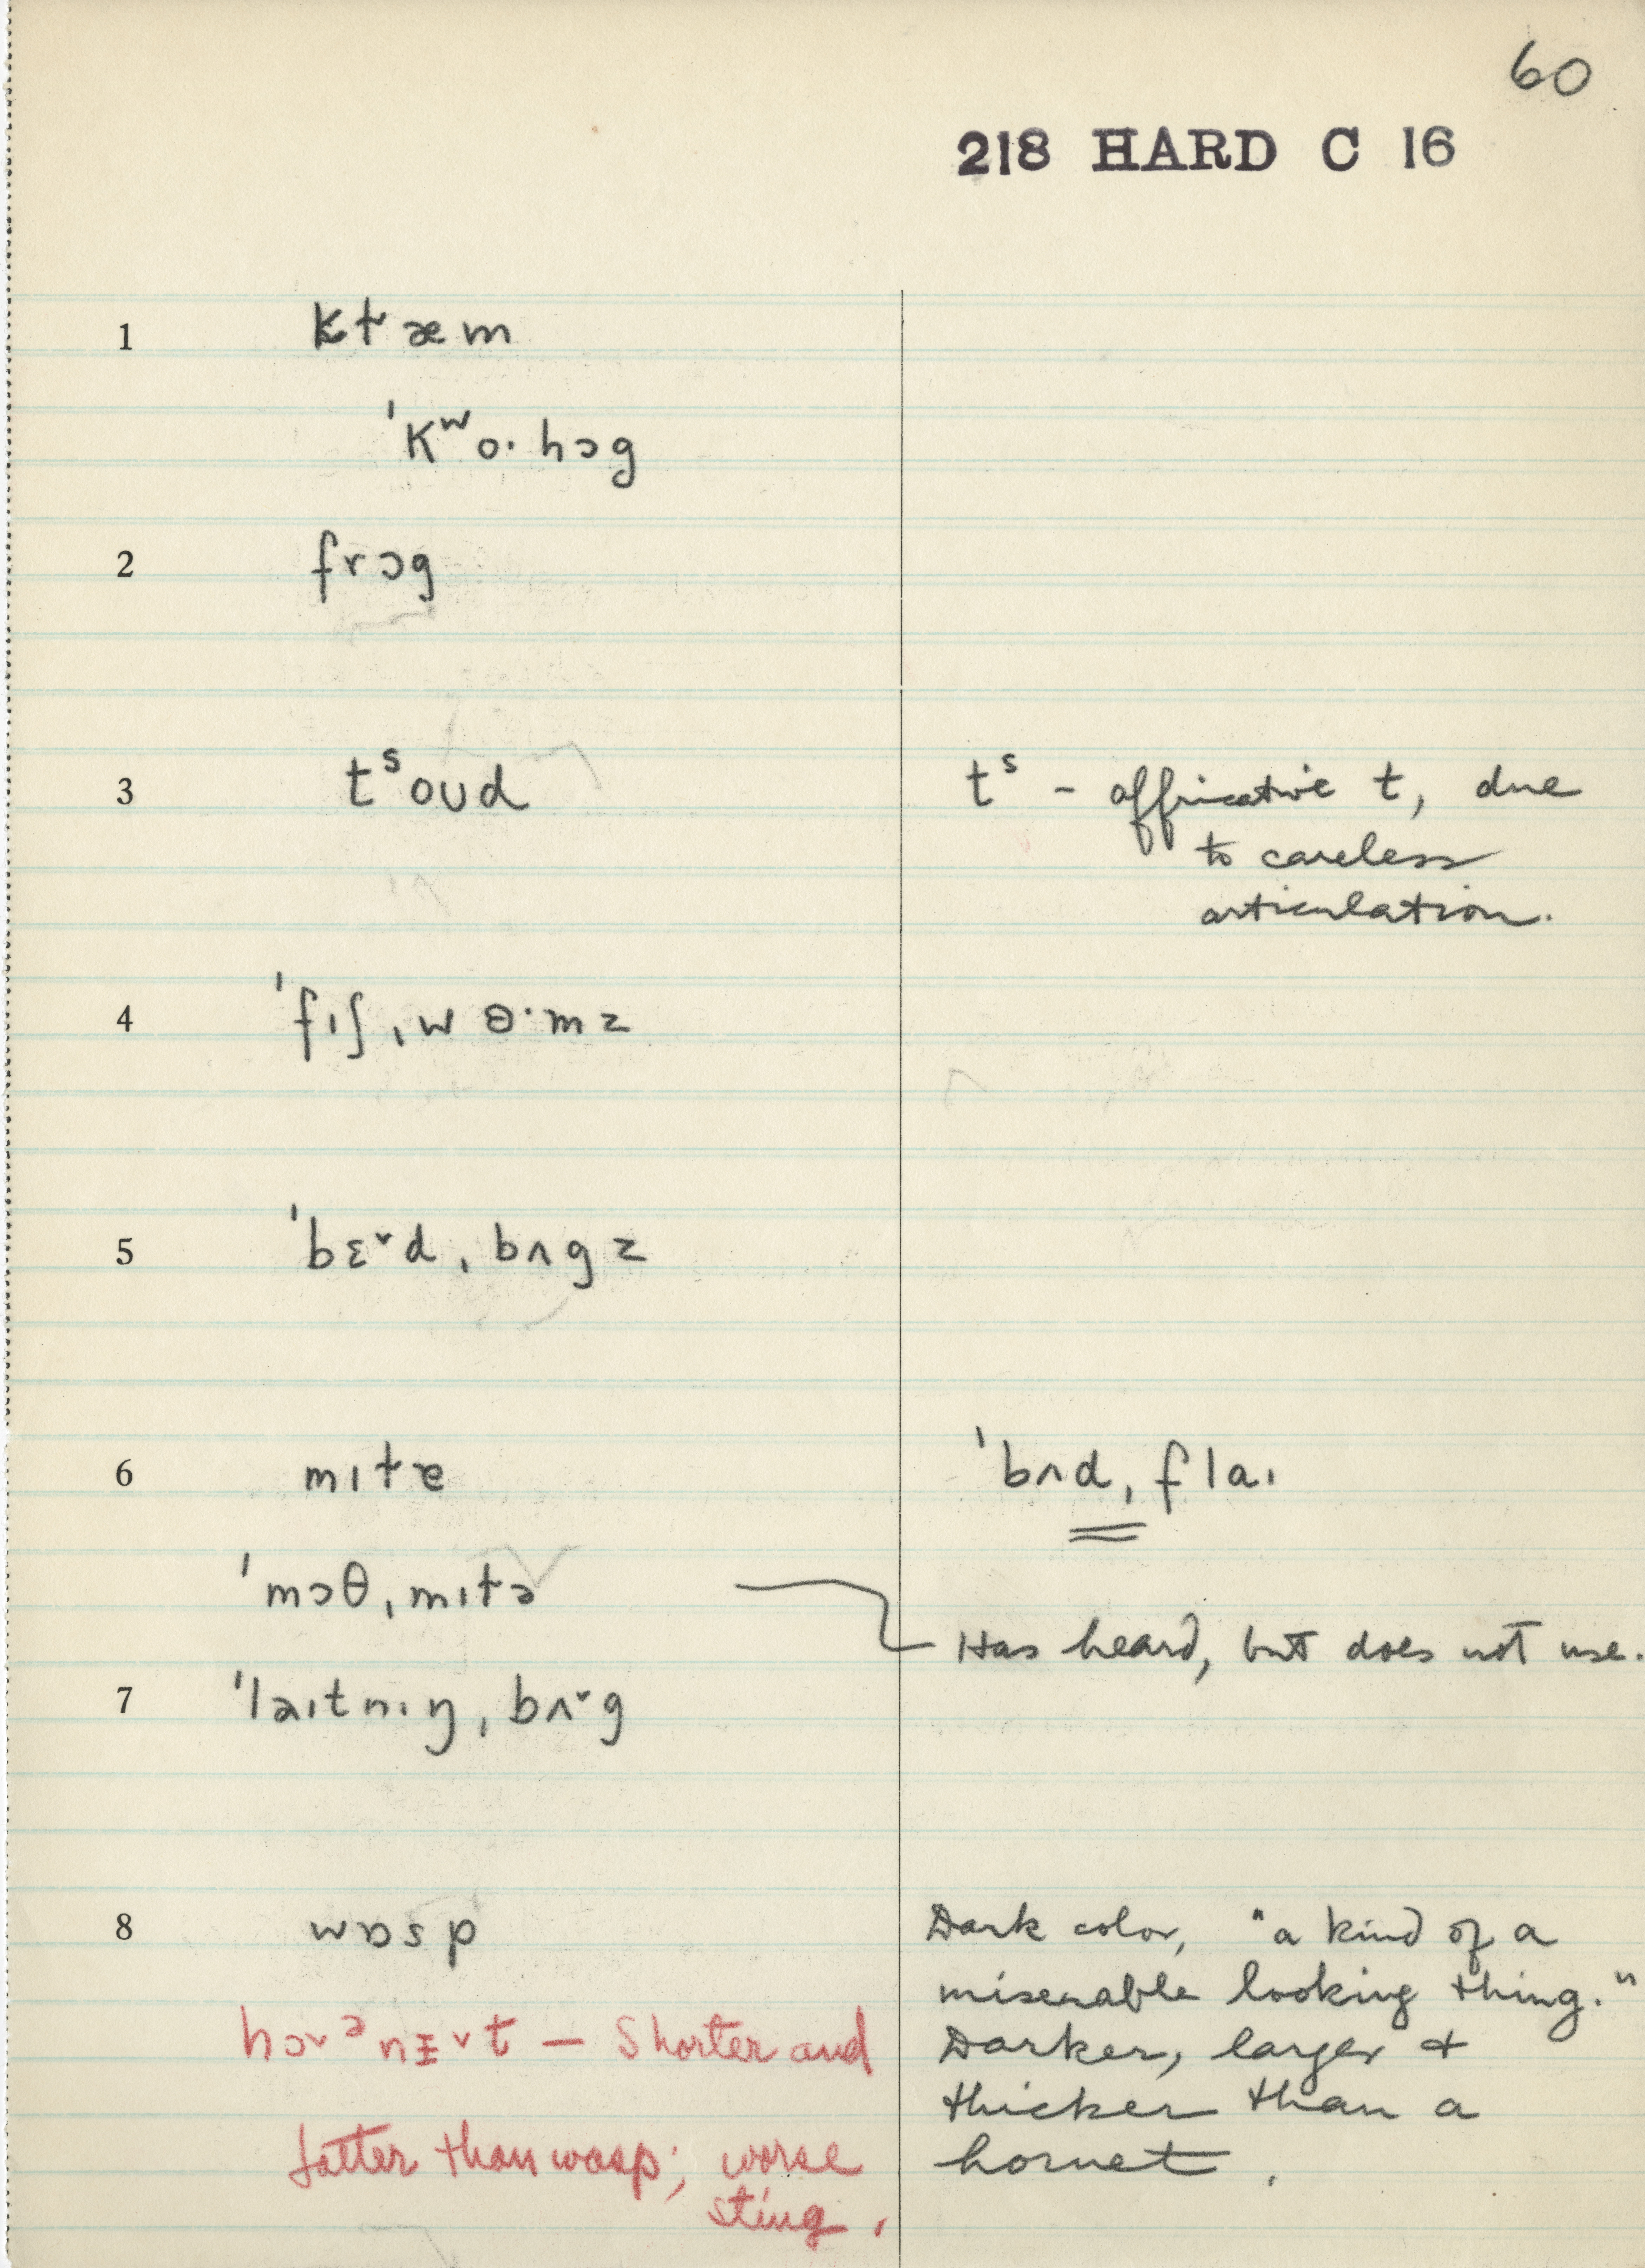 60
218 HARD C 16
1 kɫæm
ˈkʷo· hɔg
2 frɔg
3 tˢoʊd
tˢ - affricative t, due
to careless
articulation.
4 ˈfɪʃˌwɵ·mz
5 ˈbɛ˅dˌbʌgz
6 mɪɫɐ
ˈbʌdˌflaɪ
ˈmɔθˌmɪɫə
Has heard, but does not use.
7 ˈləɪtnɪŋˌbʌ˅g
8 wɒsp
Dark color, "a kind of a
miserable looking thing."
Darker, larger +
thicker than a
hornet.
hɔ˅ᵊnɪ˅t — Shorter and
fatter than wasp; worse
sting.